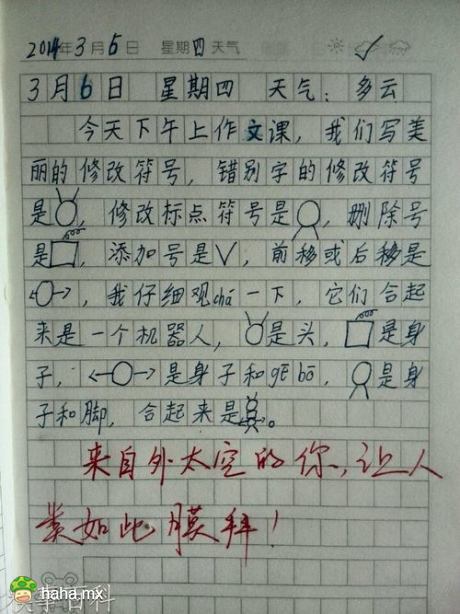 2014年3月6日 星期四 天气
3月6日 星期四 天气：多云
今天下午上作文课，我们写美
丽的修改符号，错别字的修改符号
是，修改标点符号是，删除号
是，添加号是V，前移或后移是
，我仔细观chá一下，它们合起
来是一个机器人，是头，是身
子，是身子和gē bō，是身
子和脚，合起来是。
来自外太空的你，让人
类如此膜拜！
haha.mx